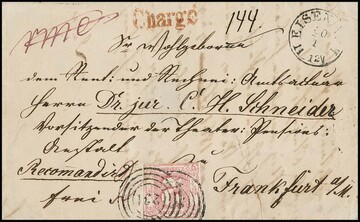 Chargé
144.
EISEN
Sr Wohlgeboren
dem Rent- und Rechnei-Amtsactuar
Herrn Dr. jur. C. H. Schneider
Vorsitzender der Theater-Pensions-
Anstalt
Recomandirt
frei
Frankfurt a/M.
231